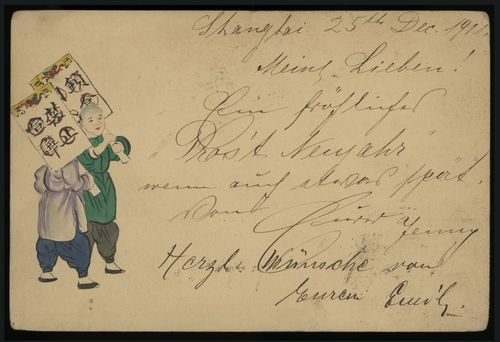 Shanghai 25th Dec. 1901.
Meine Lieben!
Ein fröhliches
"Pros't Neujahr"
wenn auch etwas spät.
Eure Jenny
Herzl. Wünsche von
Eurem Emil.